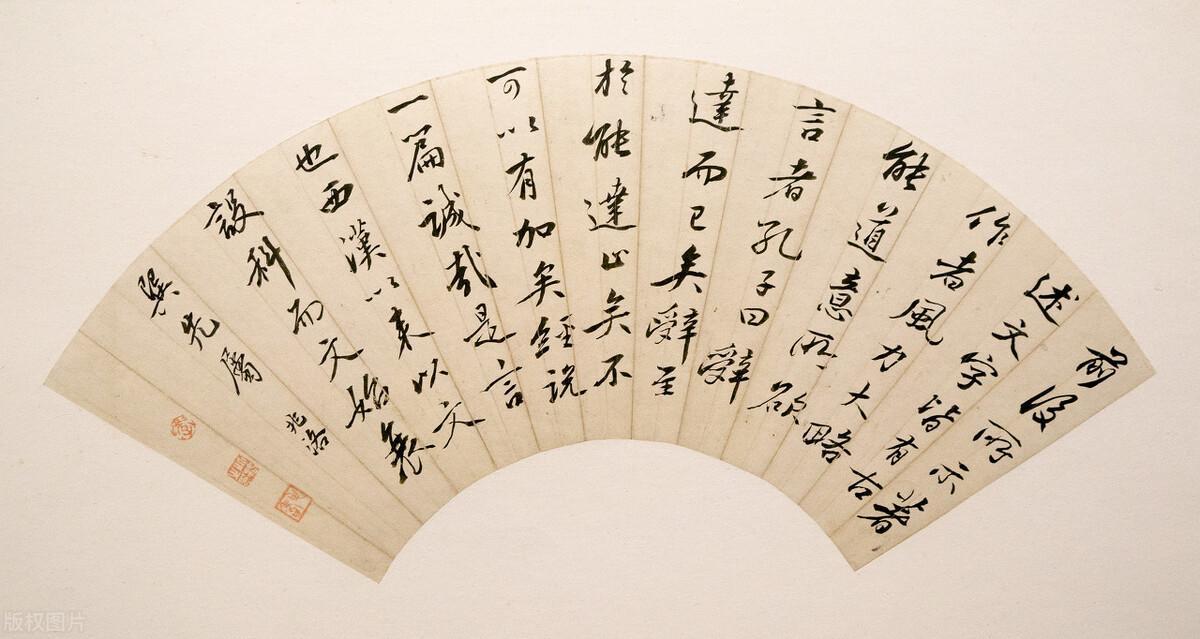 前後所示著
述文字皆有古
作者風力大略
能道意所欲
言者孔子曰辭
達而已矣辭至
於能達止矣不
可以有加矣經說
一篇誠哉是言
也西漢以來以文
設科而文始衰
巽先屬
兆洛
版权图片